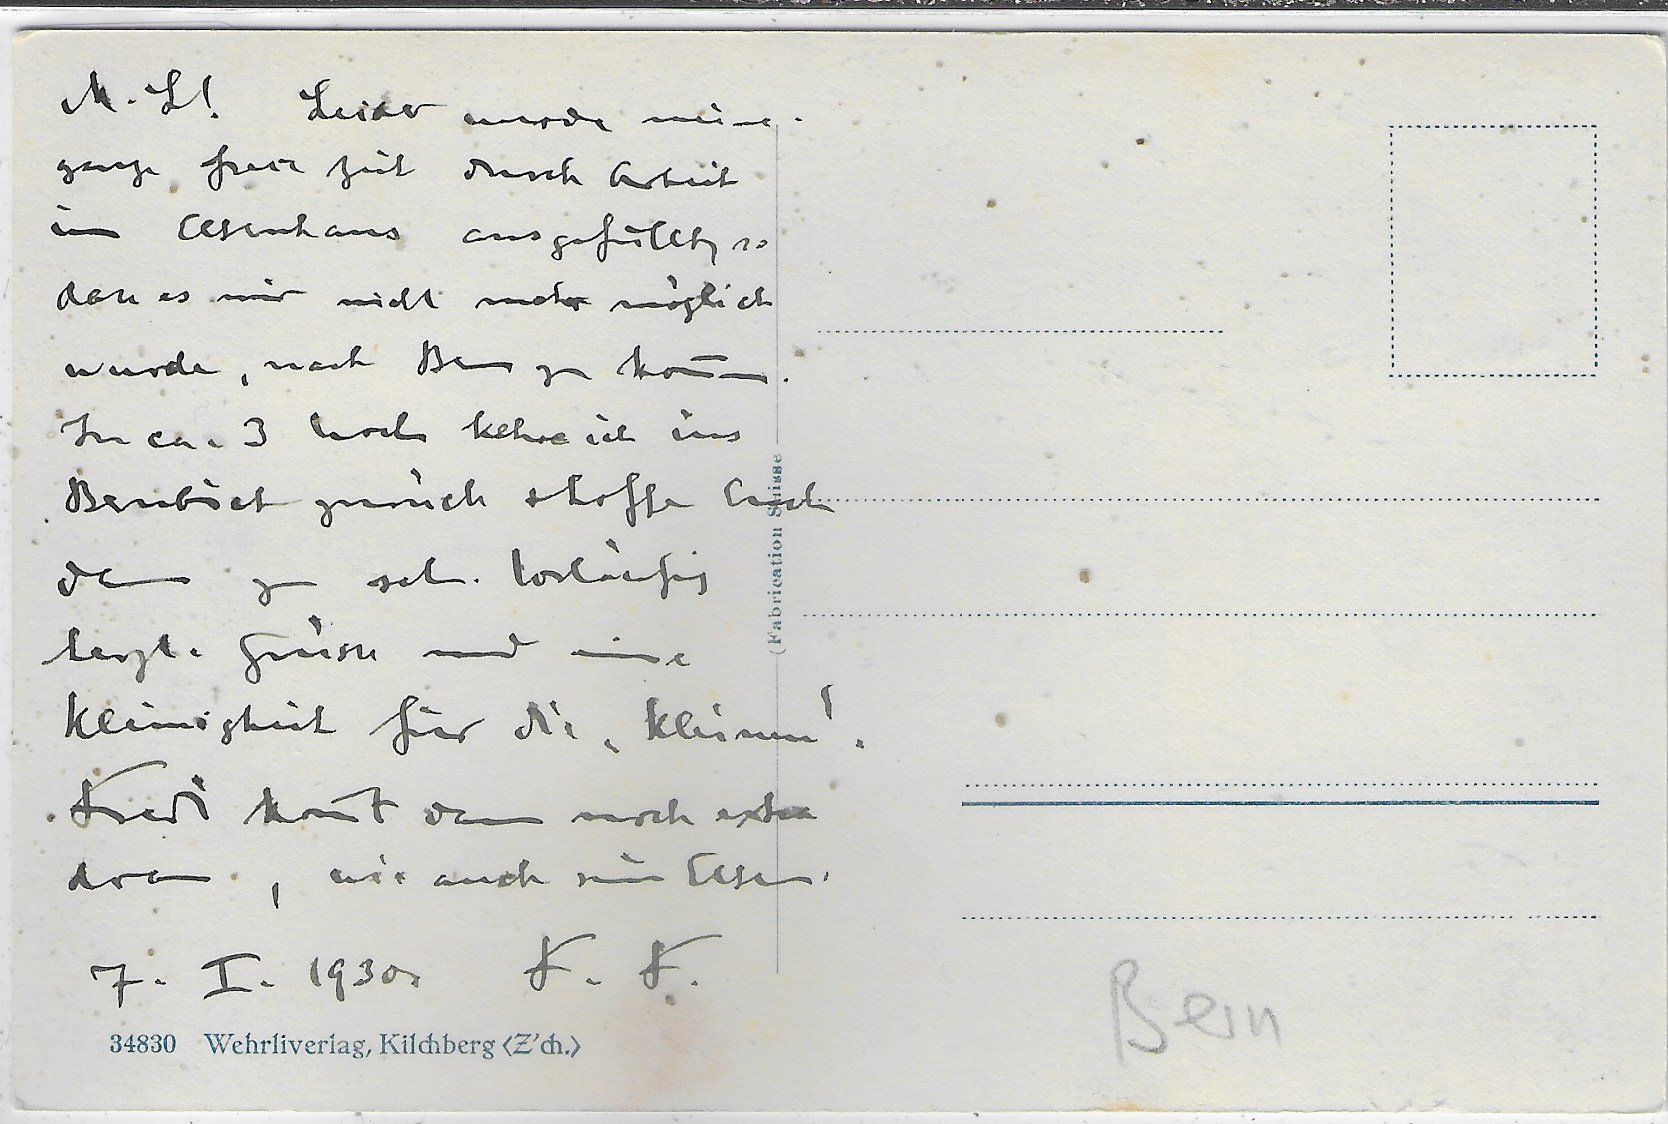 M. L! Leider wurde meine
ganze freie Zeit durch Arbeit
im Elsenhaus ausgefüllt, so
dass es mir nicht mehr möglich
wurde, nach Bern zu kom̄en.
In ca. 3 Woch. kehre ich ins
Bernbiet zurück + hoffe Euch
dann zu seh. Vorläufig
herzl. Grüsse und eine
Kleinigkeit für die „Kleinen".
Fredi kom̄t dann noch extra
dran, wie auch sein Elsen.
7. I. 1930. F. F.
34830 Wehrliverlag, Kilchberg (Z'ch.)
(Fabrication Suisse
Bern